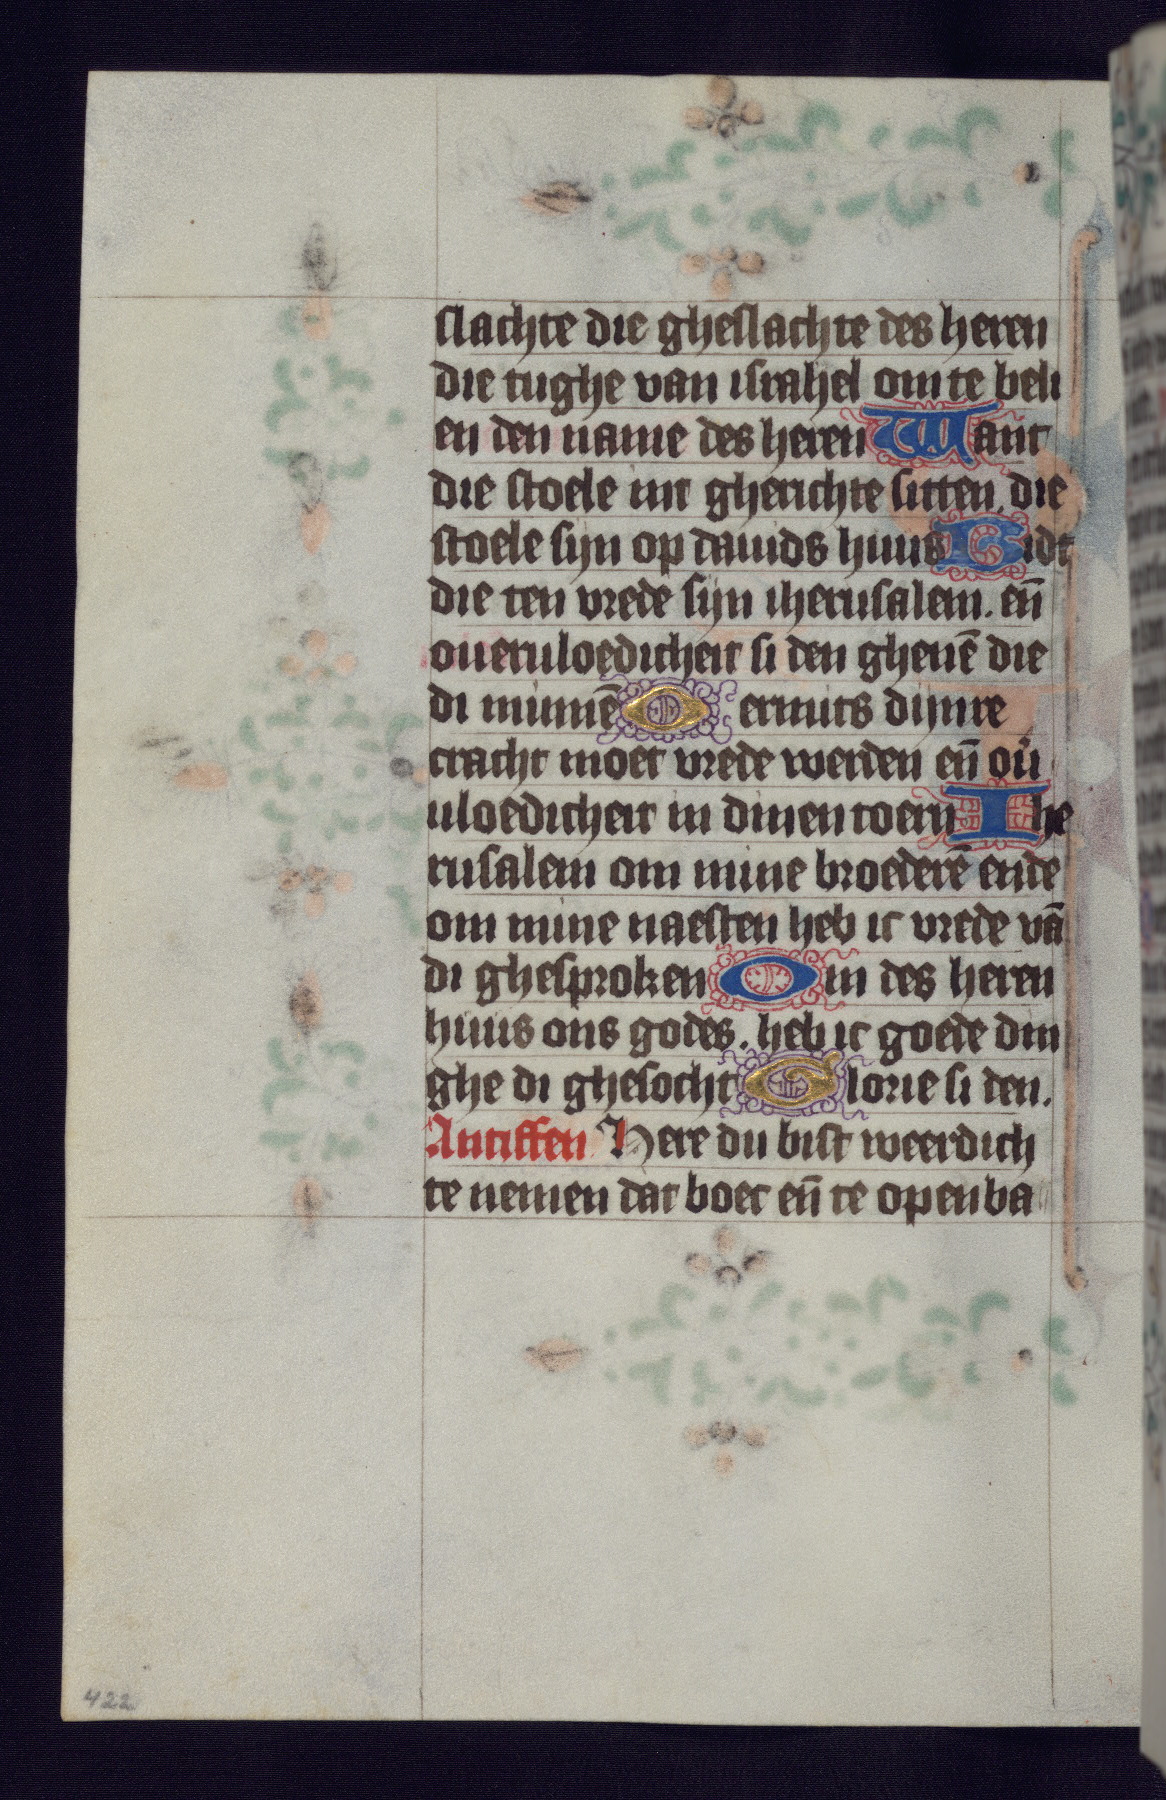 slachte die gheslachte des heren
die tughe van israhel om te beli
en den name des heren Want
die stoele int gherichte sitten. die
stoele sijn op dauids huus Bidt
die ten vrede sijn iherusalem. en̄
oueruloedicheit si den gheuē die
di minnē Oermits dijnre
cracht moet vrede werden en̄ ou̍
uloedicheit in dinen toern Ihe
rusalem om mine broederē ende
om mine naesten heb ic vrede vā
di ghesproken Om des heren
huus ons godes. heb ic goede din
ghe di ghesocht Glorie si den.
Antiffen Here du bist weerdich
te nemen dat boec en̄ te openba
422